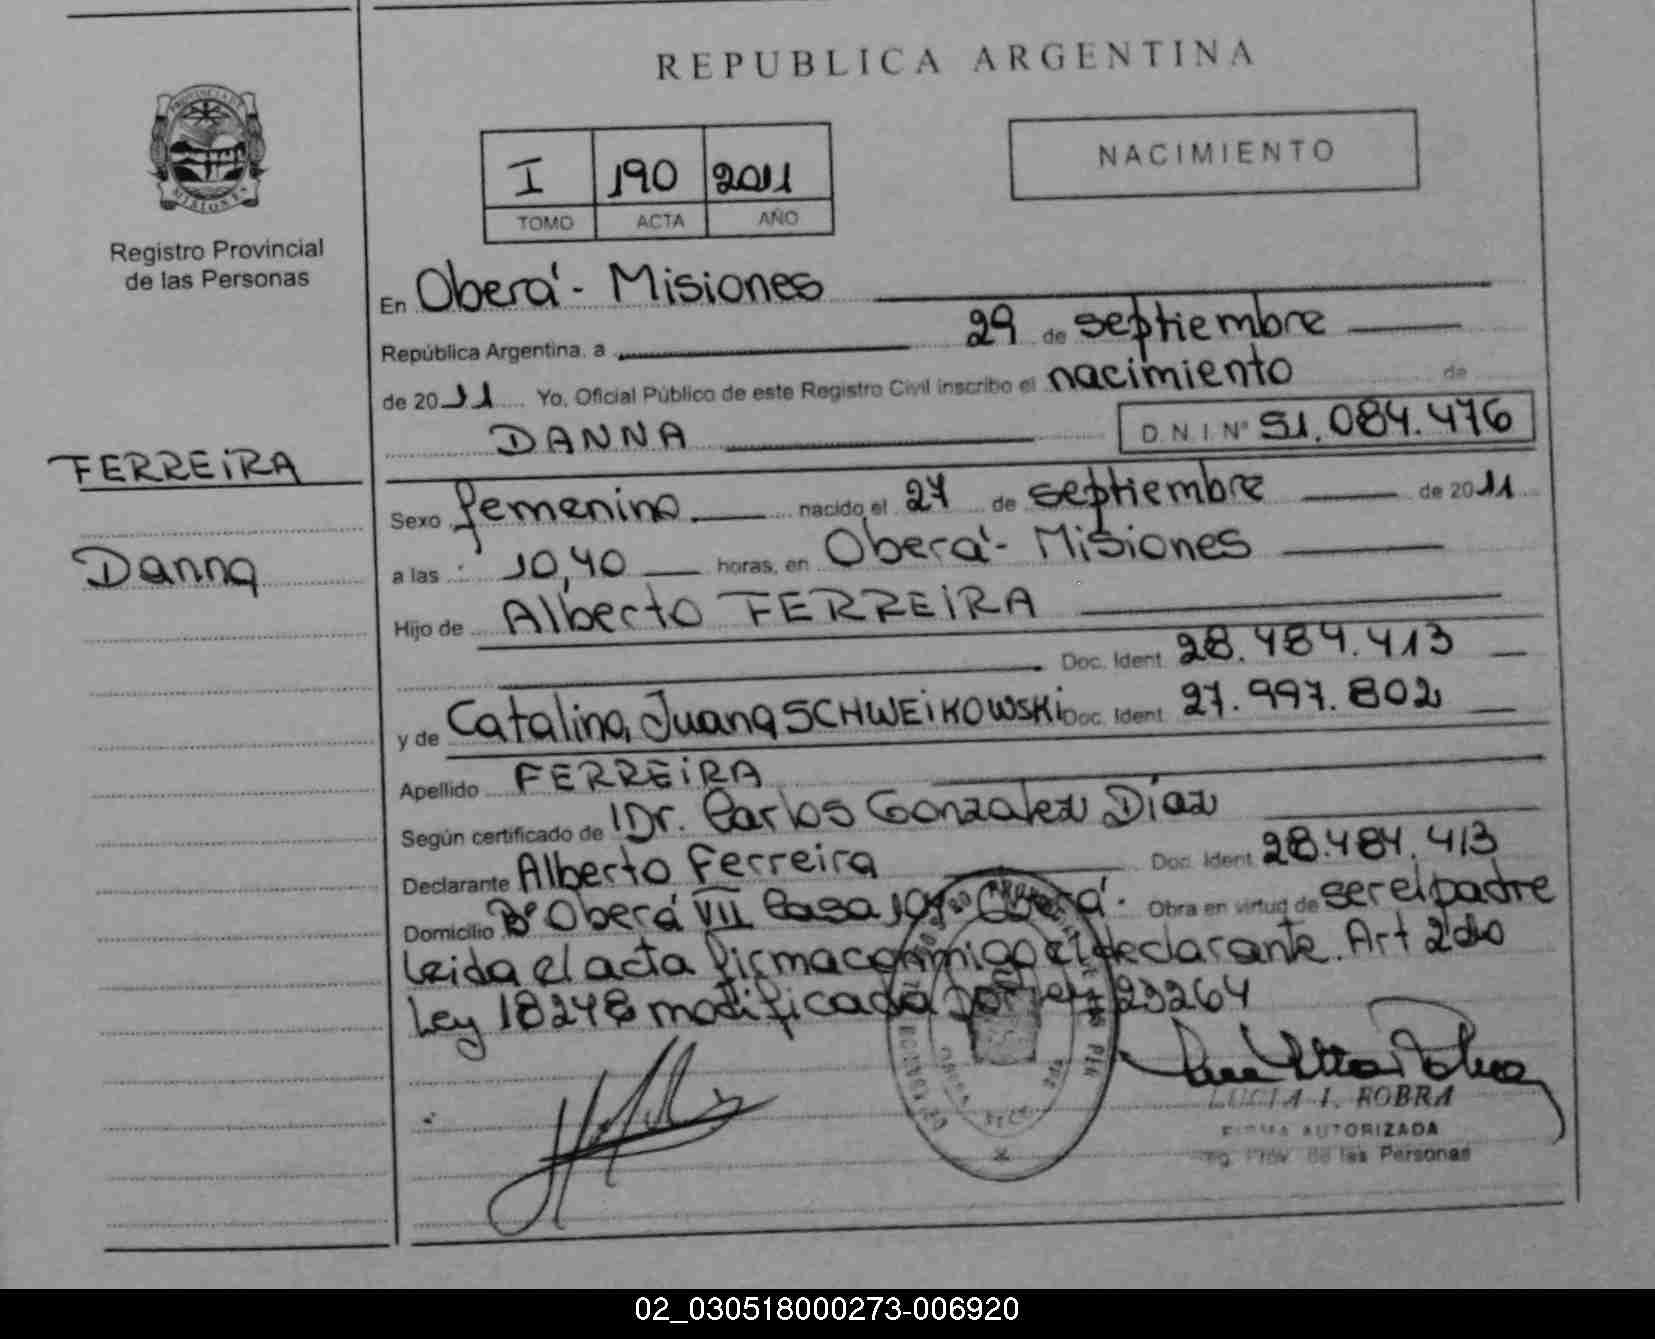 REPUBLICA ARGENTINA
PROVINCIA DE
MISIONES
Registro Provincial
de las Personas
NACIMIENTO
I 190 2011
TOMO ACTA AÑO
En Oberá - Misiones
República Argentina, a 29 de septiembre
de 2011 Yo, Oficial Público de este Registro Civil inscribo el nacimiento de
DANNA D.N.I. Nº 51.084.476
FERREIRA
Danna
Sexo femenino nacido el 27 de septiembre de 2011
a las 10,40 horas, en Oberá - Misiones
Hijo de Alberto FERREIRA
Doc. Ident. 28.484.413
y de Catalina Juana SCHWEIKOWSKI Doc. Ident. 27.997.802
Apellido FERREIRA
Según certificado de Dr. Carlos Gonzalez Díaz
Declarante Alberto Ferreira Doc. Ident. 28.484.413
Domicilio Bº Oberá VII Casa Oberá. Obra en virtud de ser el padre
Leida el acta firma conmigo el declarante. Art 2do
Ley 18248 modificada por ley 23264
LUCIA I. ROBRA
FIRMA AUTORIZADA
Reg. Prov. de las Personas
02_030518000273-006920